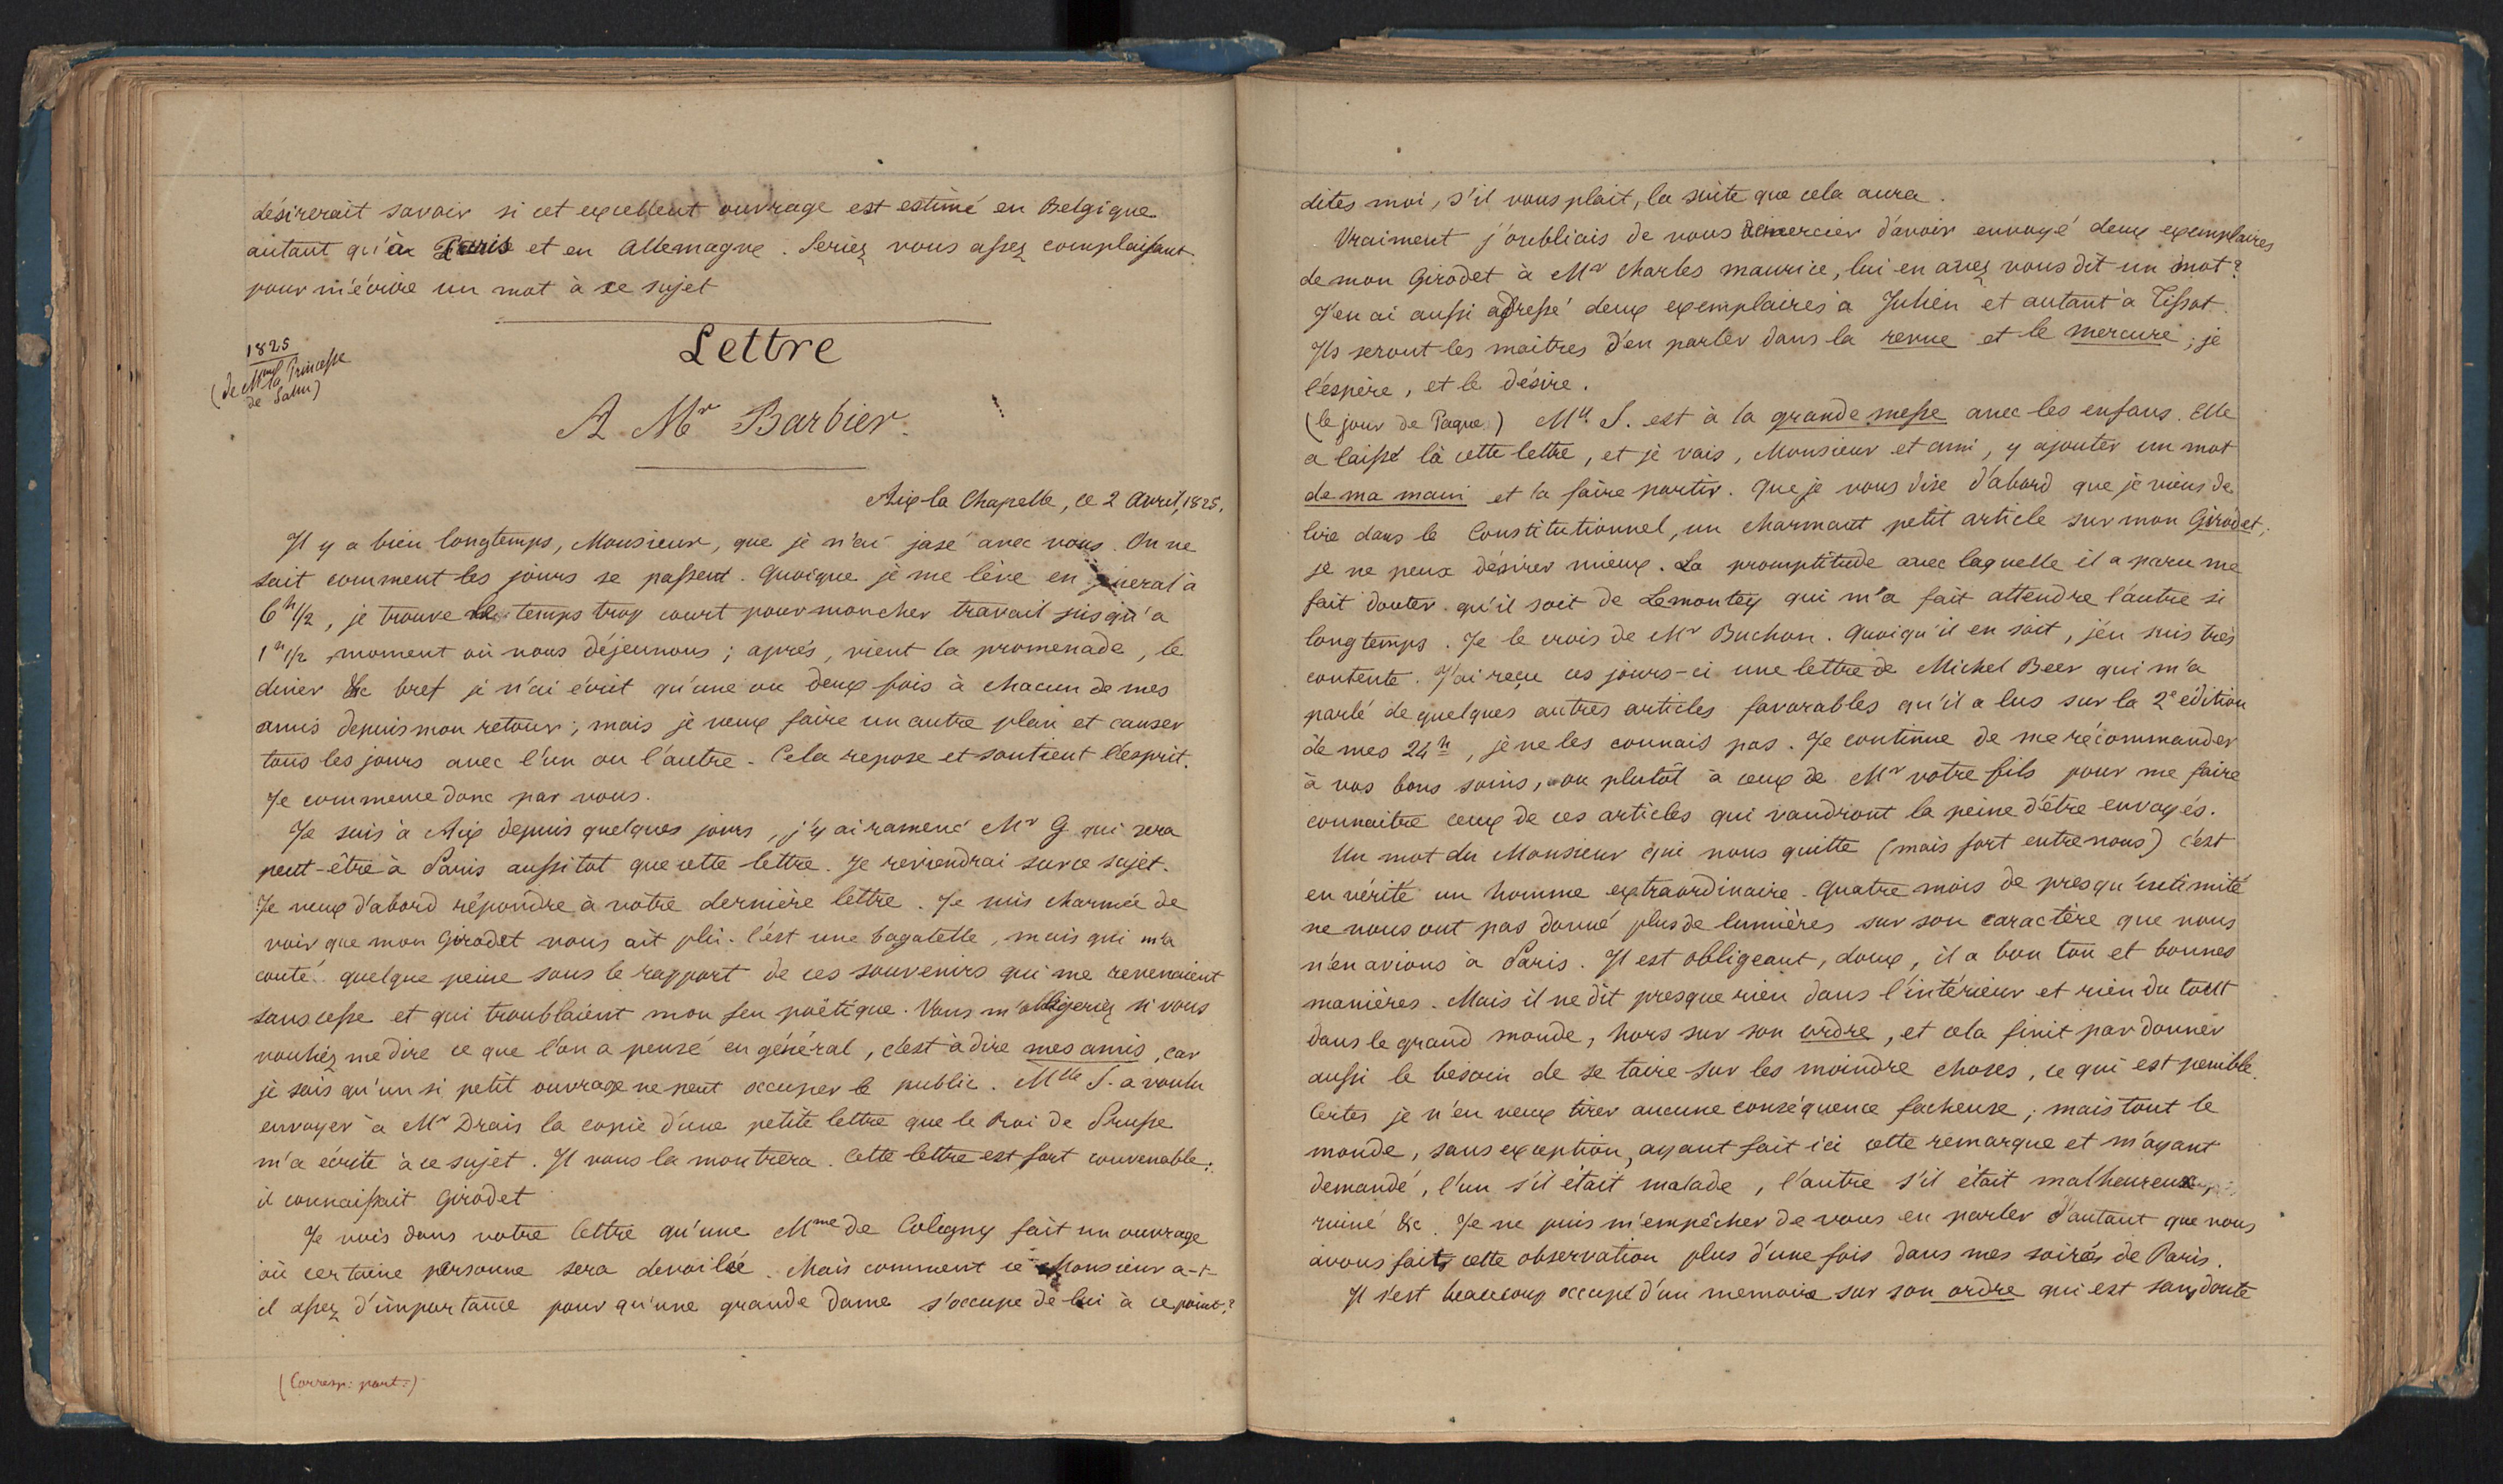 désirerait savoir si cet excellent ouvrage est estimé en Belgique
autant qu'à Paris et en Allemagne. Seriez vous assez complaisant
pour m'écrire un mot à ce sujet
Lettre
1825
(de Mme la Princesse
de Salm)
A Mr Barbier.
Aix-la Chapelle, ce 2 Avril, 1825.
Il y a bien longtemps, Monsieur, que je n'ai jasé avec vous. On ne
sait comment les jours se passent. Quoique je me lève en géneral à
6h 1/2, je trouve le temps trop court pour mon cher travail jusqu'à
1h 1/2 moment où nous déjeunons ; après, vient la promenade, le
diner &c bref je n'ai écrit qu'une ou deux fois à chacun de mes
amis depuis mon retour ; mais je veux faire un autre plan et causer
tous les jours avec l'un ou l'autre. Cela repose et soutient l'esprit.
Je commence donc par vous.
Je suis à Aix depuis quelques jours, j'y ai ramené Mr G qui sera
peut-être à Paris aussitot que cette lettre. Je reviendrai sur ce sujet.
Je veux d'abord répondre à vôtre dernière lettre. Je suis charmée de
voir que mon Girodet vous ait plu. C'est une bagatelle, mais qui m'a
couté quelque peine sous le rapport de ces souvenirs qui me revenaient
sans cesse et qui troublaient mon feu poëtique. Vous m'obligeriez si vous
vouliez me dire ce que l'on a pensé en général, c'est à dire mes amis, car
je sais qu'un si petit ouvrage ne peut occuper le public. Mlle S. a voulu
envoyer à Mr Drais la copie d'une petite lettre que le Roi de Prusse
m'a écrite à ce sujet. Il vous la montrera. Cette lettre est fort convenable ;
il connaissait Girodet
Je vois dans votre lettre qu'une Mme de Coligny fait un ouvrage
où certaine personne sera devoilée. Mais comment ce Monsieur a-t-
il assez d'importance pour qu'une grande Dame s'occupe de lui à ce point ?
(Corresp: part:)
dites moi, s'il vous plait, la suite que cela aura.
Vraiment j'oubliais de vous remercier d'avoir envoyé deux exemplaires
de mon Girodet à Mr Charles Maurice, lui en avez vous dit un mot ?
J'en ai aussi adressé deux exemplaires à Julien et autant à Tissot.
Ils seront les maitres d'en parler dans la revue et le mercure ; je
l'espère, et le désire.
(le jour de Paque) Mlle S. est à la grande messe avec les enfans. Elle
a laissé là cette lettre, et je vais, Monsieur et ami, y ajouter un mot
de ma main et la faire partir. Que je vous dise d'abord que je viens de
lire dans le Constitutionnel, un charmant petit article sur mon Girodet ;
je ne peux désirer mieux. La promptitude avec laquelle il a paru me
fait douter qu'il soit de Lemontey qui m'a fait attendre l'autre si
longtemps. Je le crois de Mr Buchon. Quoiqu'il en soit, j'en suis très
contente. J'ai reçu ces jours-ci une lettre de Michel Beer qui m'a
parlé de quelques autres articles favorables qu'il a lus sur la 2e édition
de mes 24 h, je ne les connais pas. Je continue de me récommander
à vos bons soins, ou plutôt à ceux de Mr votre fils pour me faire
connaitre ceux de ces articles qui vaudront la peine d'être envoyés.
Un mot du Monsieur qui nous quitte (mais fort entre nous) c'est
en vérité un homme extraordinaire. Quatre mois de presqu'intimité
ne nous ont pas donné plus de lumières sur son caractère que nous
n'en avions à Paris. Il est obligeant, doux, il a bon ton et bonnes
manières. Mais il ne dit presque rien dans l'intérieur et rien du tout
dans le grand monde, hors sur son ordre, et cela finit par donner
aussi le besoin de se taire sur les moindre choses, ce qui est penible.
Certes je n'en veux tirer aucune conséquence facheuse ; mais tout le
monde, sans exception, ayant fait ici cette remarque et m'ayant
demandé, l'un s'il était malade, l'autre s'il était malheureux,
ruiné &c. Je ne puis m'empêcher de vous en parler d'autant que nous
avons fait cette observation plus d'une fois dans mes soirées de Paris.
Il s'est beaucoup occupé d'un memoire sur son ordre qui est sans doute